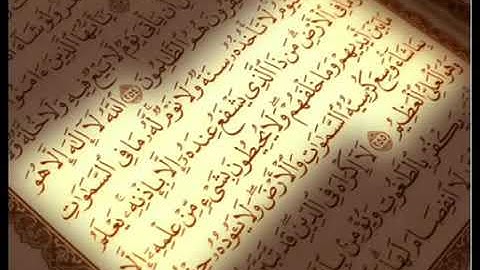 وَلَوْ شَاءَ
يَٰٓأَيُّهَا ٱلَّذِينَ ءَامَنُوٓا۟
أَن يَأْتِىَ يَوْمٌ لَّا بَيْعٌ فِيهِ وَلَا خُلَّةٌ وَلَا
هُمُ ٱلظَّٰلِمُونَ ٢٥٤ ٱللَّهُ لَآ إِلَٰهَ إِلَّا هُوَ
لَا تَأْخُذُهُۥ سِنَةٌ وَلَا نَوْمٌ لَّهُۥ مَا فِى ٱلسَّمَٰوَٰتِ
فِى ٱلْأَرْضِ مَن ذَا ٱلَّذِى يَشْفَعُ عِندَهُۥٓ إِلَّا بِإِذْنِهِۦ يَعْلَمُ
مَا بَيْنَ أَيْدِيهِمْ وَمَا خَلْفَهُمْ وَلَا يُحِيطُونَ بِشَىْءٍ مِّنْ عِلْمِهِۦٓ إِلَّا
بِمَا شَآءَ وَسِعَ كُرْسِيُّهُ ٱلسَّمَٰوَٰتِ وَٱلْأَرْضَ وَلَا يَـُٔودُهُۥ
وَهُوَ ٱلْعَلِىُّ ٱلْعَظِيمُ ٢٥٥ لَآ إِكْرَاهَ فِى ٱلدِّينِ قَد تَّبَيَّنَ
يَكْفُرْ بِٱلطَّٰغُوتِ وَيُؤْمِنۢ
لَا ٱنفِصَامَ لَهَا